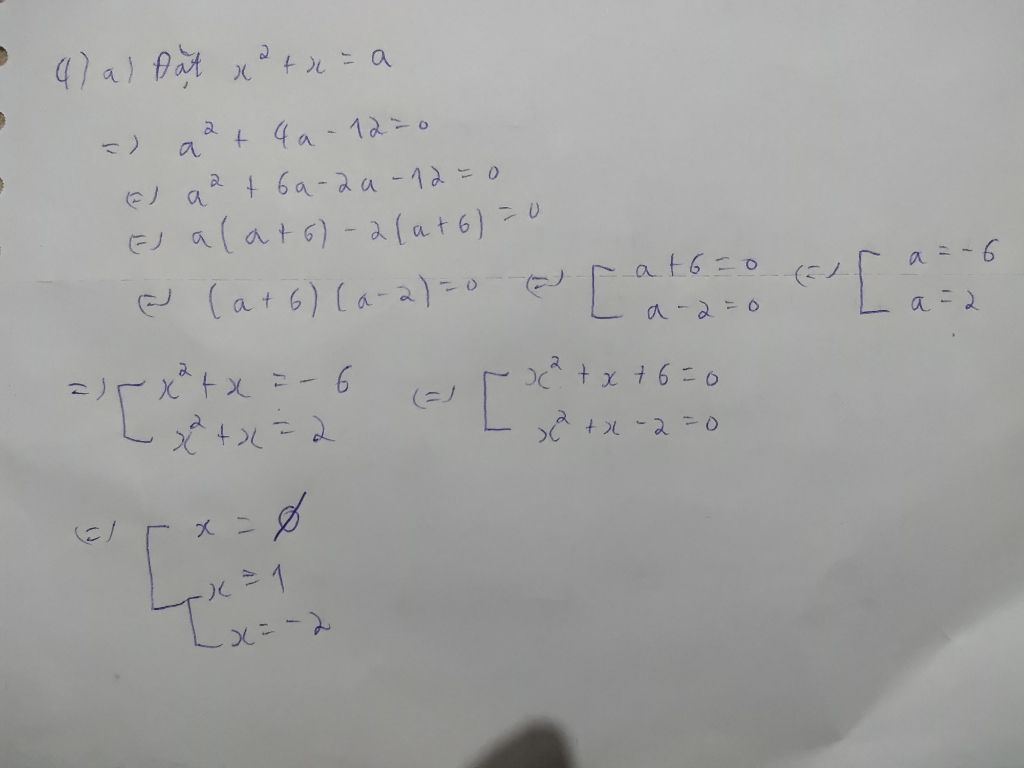 4) a) Đặt x² + x = a
=) a² + 4a - 12 = 0
(=) a² + 6a - 2a - 12 = 0
(=) a(a + 6) - 2(a + 6) = 0
(=) (a + 6)(a - 2) = 0 (=) [ a + 6 = 0 (=) [ a = -6
a - 2 = 0 a = 2
=) [ x² + x = -6 (=) [ x² + x + 6 = 0
x² + x = 2 x² + x - 2 = 0
(=) [ x = ∅
[ x = 1
x = -2